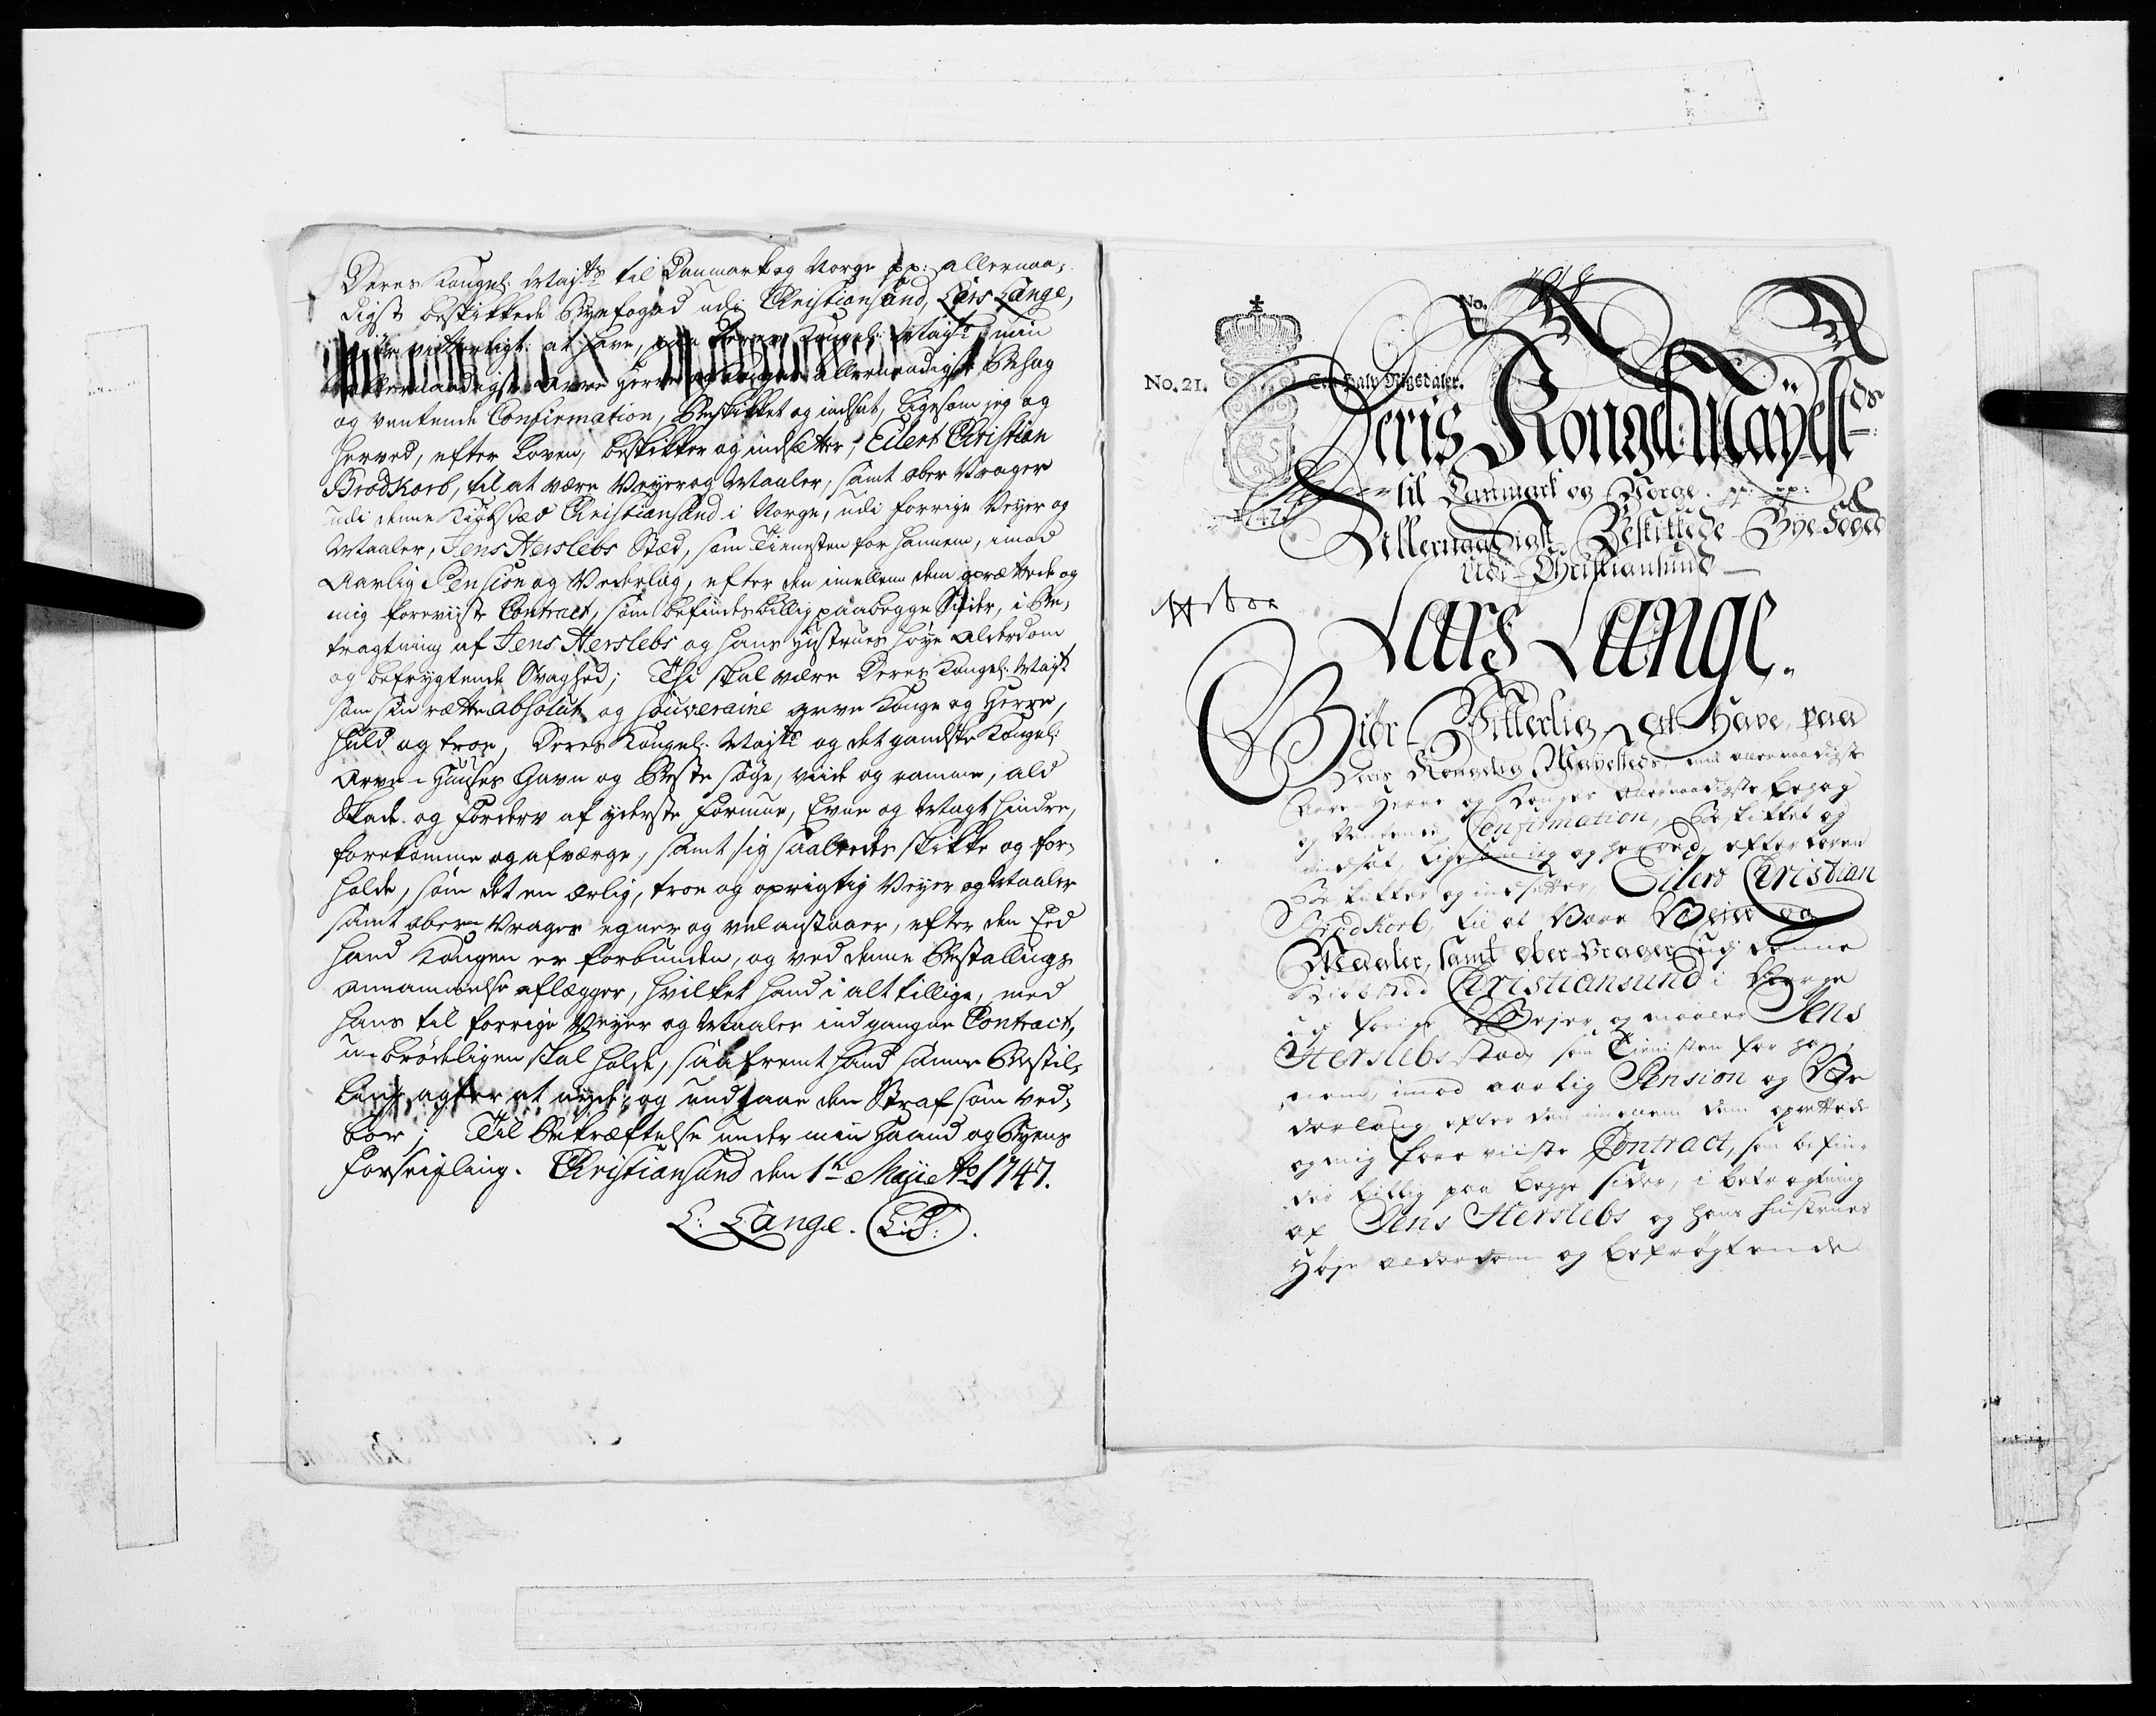 Deres Kongel: Maj:ts til Danmark og Norge pp: allernaa-
digst bestikkede Byefoged udi Christiansund, Lars Lange,
giør vitterligt: at have, paa Deres Kongel: Mayts min
allernaadigste Arve Herres og Konges allernaadigste Behag
og ventende Confirmation, Beskikket og indsat, ligesom jeg og
herved, efter Loven, beskikker og indsætter, Eilert Christian
BrodKorb, til at være Vejer og Maaler, samt ober Vrager
udi denne Kiøbstæd Christiansund i Norge, udi forrige Vejer og
Maaler, Jens Herslebs Stæd, som Tienesten for hannem, imod
Aarlig Pension og Vederlag, efter den imellem dem oprettede og
mig foreviiste Contract, som befindes billig paa begge Siider, i Be-
tragtning af Jens Herslebs og hans Hustrues høye Alderdom
og befrygtende Svaghed; Thi skal være Deres Kongel. Mayt
som sin rætte absolut og souveraine arve Konge og Herre,
huld og troe, Deres Kongel. Mayts og det gandske Kongel:
Arve-Huuses Gavn og Beste søge, viide og ramme, ald
Skade og Forderv af yderste Formue, Evne og Magt hindre,
forekomme og afværge, samt sig saaledes skikke og for-
holde, som det en ærlig, troe og oprigtig Vejer og Maaler
samt ober-Vrager egner og vel anstaaer, efter den Eed
hand Kongen er forbunden, og ved denne Bestallings
annammelse aflægger, hvilket hand i alt tillige, med
hans til forrige Vejer og Maaler indgangne Contract,
u-brødeligen skal holde, saafremt hand samme Bestil-
ling agter at nyde; og undgaae den Straf som ved-
bør; Til Bekræftelse under min Haand og Byens
Forseigling. Christiansund den 1te Maji Ao 1747.
L: Lange. (L:S:).
No.
No. 21. En Halv Rigsdaler.
1747.
Deris Kongel: Mäyestds
til Danmark og Norge. pp: pp:
Allernaadigst Beskikkede Bye Foged
Udi Christiansund
Lars Lange.
Giør Vitterlig at Have, paa
Deris Kongelig Mäyesteds min allernaadigste
Arve Herre og Konges allernaadigste behag
og Ventende Confirmation, Beskikket og
indsat, ligesom jeg og herved, efter Loven
Beskikker og indsetter, Eilert Christian
BrodKorb, til at Være Vejer og
Maaler, samt Ober-Vrager udj denne
Kiøbstæd Christiansund i Norge
udj forige Vejer og maaler Jens
Herslebs stæd, som Tienesten for han-
nem, imod aarlig Pension og Ve
derlaug, efter den imellem dem oprettede
og mig foreviiste Contract, som befin-
des billig paa begge sider, i betragtning
af Jens Herslebs og hans hustrues
Høje alderdom og befrøgtende